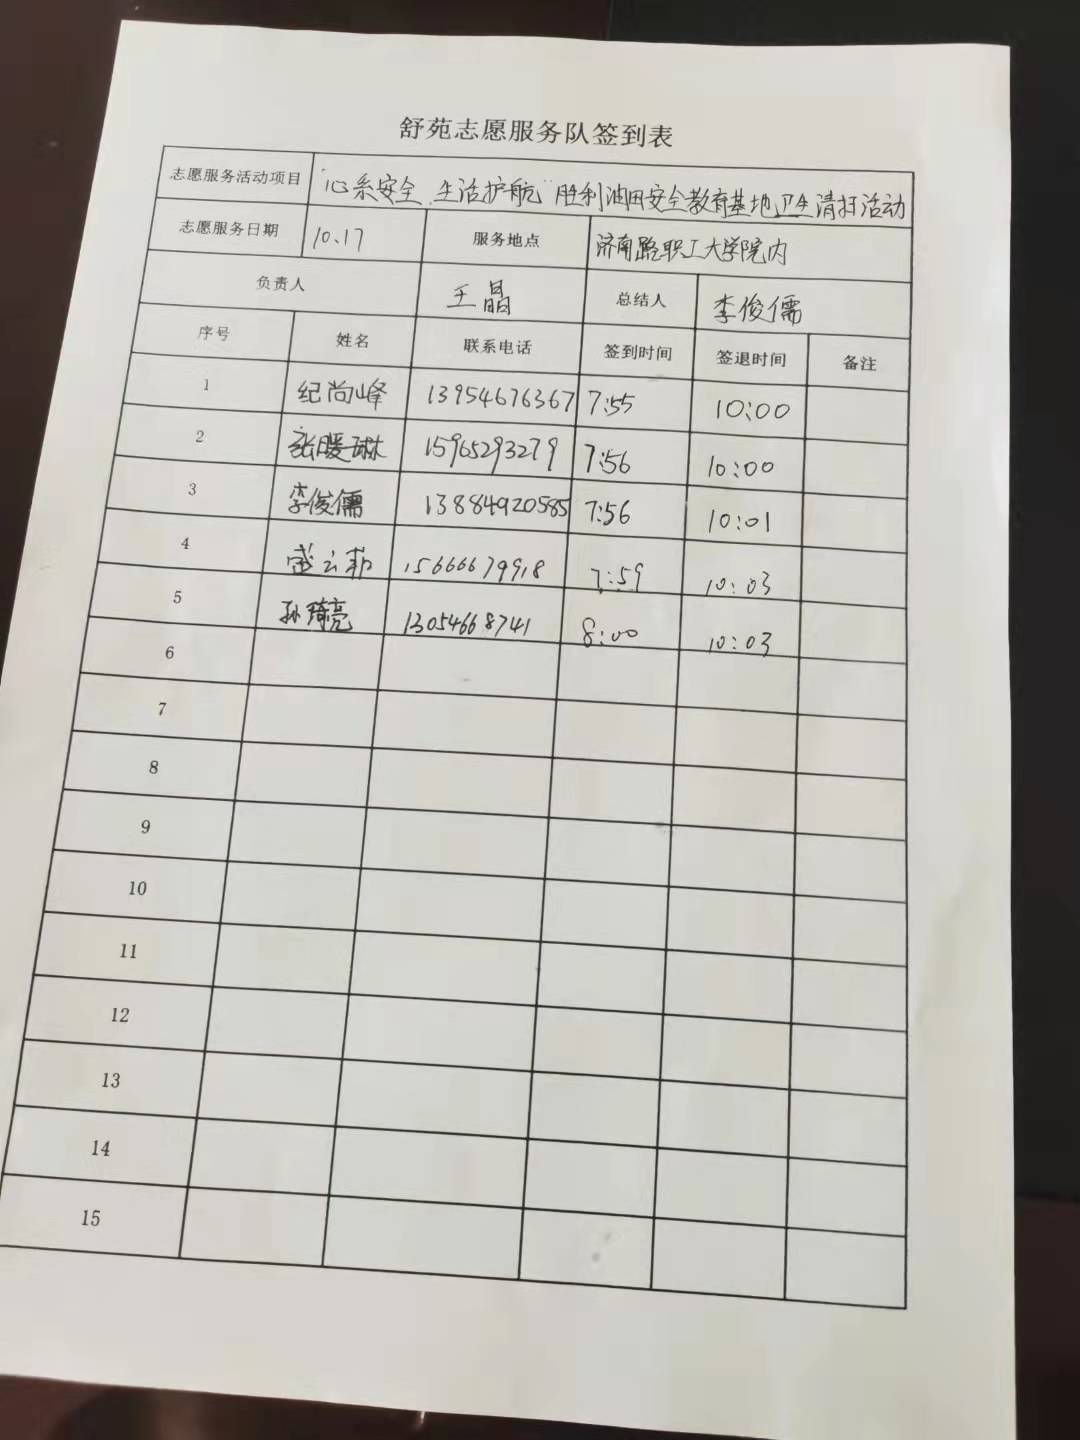 舒苑志愿服务队签到表
志愿服务活动项目 "心系安全、生活护航"胜利油田安全教育基地卫生清扫活动
志愿服务日期 10.17 服务地点 济南路职工大学院内
负责人 王晶 总结人 李俊儒
序号 姓名 联系电话 签到时间 签退时间 备注
1 纪尚峰 13954676367 7:55 10:00
2 张暖琳 15965293279 7:56 10:00
3 李俊儒 13884920585 7:56 10:01
4 盛云 15666679918 7:59 10:03
5 孙琦亮 13054668741 8:00 10:03
6
7
8
9
10
11
12
13
14
15